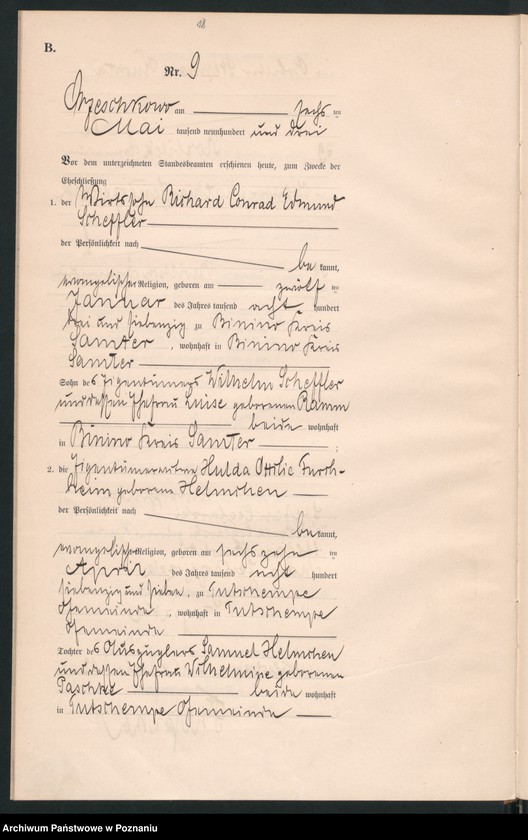 18
B.
Nr. 9
Orzeschkowo am sechs ten
Mai tausend neunhundert und drei
Vor dem unterzeichneten Standesbeamten erschienen heute, zum Zwecke der
Eheschließung
1. der Wirtssohn Richard Conrad Edmund
Scheffler
der Persönlichkeit nach
be kannt,
evangelischer Religion, geboren am zwölf ten
Januar des Jahres tausend acht hundert
drei und siebenzig zu Binino Kreis
Samter, wohnhaft in Binino Kreis
Samter
Sohn des Eigentümers Wilhelm Scheffler
und dessen Ehefrau Luise geborenen Ramm
beide wohnhaft
in Binino Kreis Samter ;
2. die Eigentümerwitwe Hulda Ottilie Furch-
heim geborene Helmchen
der Persönlichkeit nach
be kannt,
evangelischer Religion, geboren am sechszehn ten
April des Jahres tausend acht hundert
siebenzig und sieben, zu Gutschempe
Gemeinde, wohnhaft in Gutschempe
Gemeinde
Tochter des Auszüglers Samuel Helmchen
und dessen Ehefrau Wilhelmine geborenen
Paschke beide wohnhaft
in Gutschempe Gemeinde
Archiwum Państwowe w Poznaniu